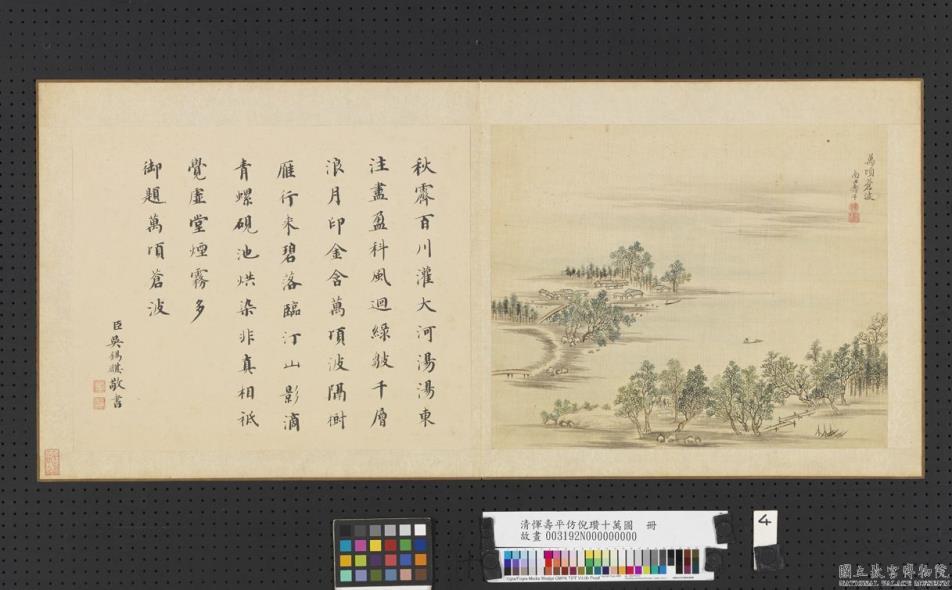 萬頃蒼波
秋霽百川灌大河湯湯東
注盡盈科風迴綠皺千層
浪月印金含萬頃波隔樹
雁行来碧落臨汀山影滴
青螺硯池烘染非真相祇
覺虛堂煙霧多
御題萬頃蒼波
臣吳錫麒敬書
清惲壽平仿倪瓚十萬圖 冊
故畫 003192N000000000
4
國立故宮博物院
NATIONAL PALACE MUSEUM